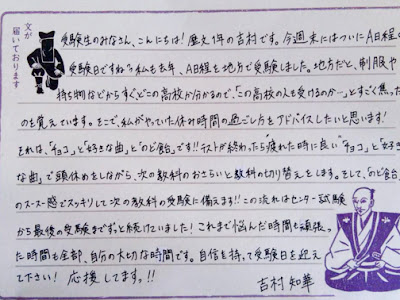 文が
届いております
受験生のみなさん、こんにちは!歴文1年の吉村です。今週末にはついにA日程の
受験日ですね。私も去年、A日程を地方で受験しました。地方だと、制服や
持ち物などからすぐどこの高校か分かるので、「この高校の人も受けるのかー」とすごく焦った
のを覚えています。そこで、私がやっていた休み時間の過ごし方をアドバイスしたいと思います!
それは、「チョコ」と「好きな曲」と「のど飴」です!!テストが終わったら"疲れた時に良い"「チョコ」と「好き
な曲」で頭休めをしながら、次の教科のおさらいと教科の切り替えをします。そして、「のど飴」
のスースー感でスッキリして次の教科の受験に備えます!!この流れはセンター試験
から最後の受験までずっと続けていました!これまで悩んだ時間も頑張っ
た時間も全部、自分の大切な時間です。自信を持って受験日を迎えて
下さい!応援してます。!!
吉村 知華